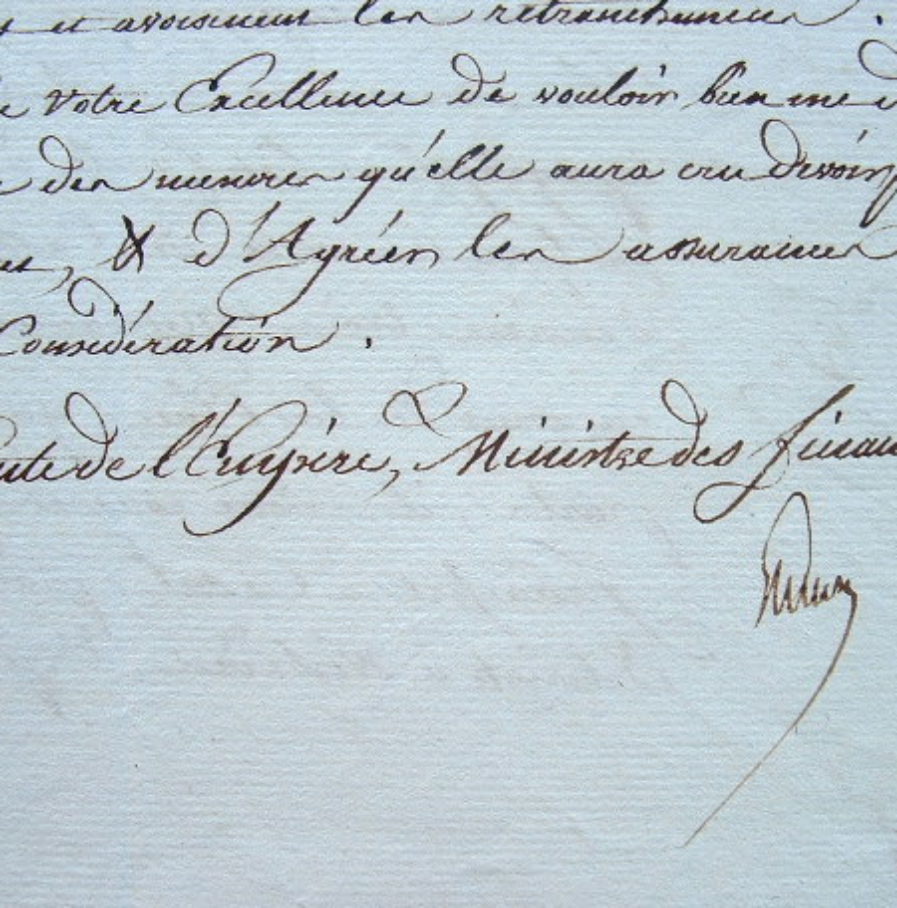 et avoisinent les retranchemens.
Votre Excellence de vouloir bien me
des mesures qu'elle aura cru devoir
, & d'Agréer, les assurances
Considération.
de l'Empire, Ministre des finan